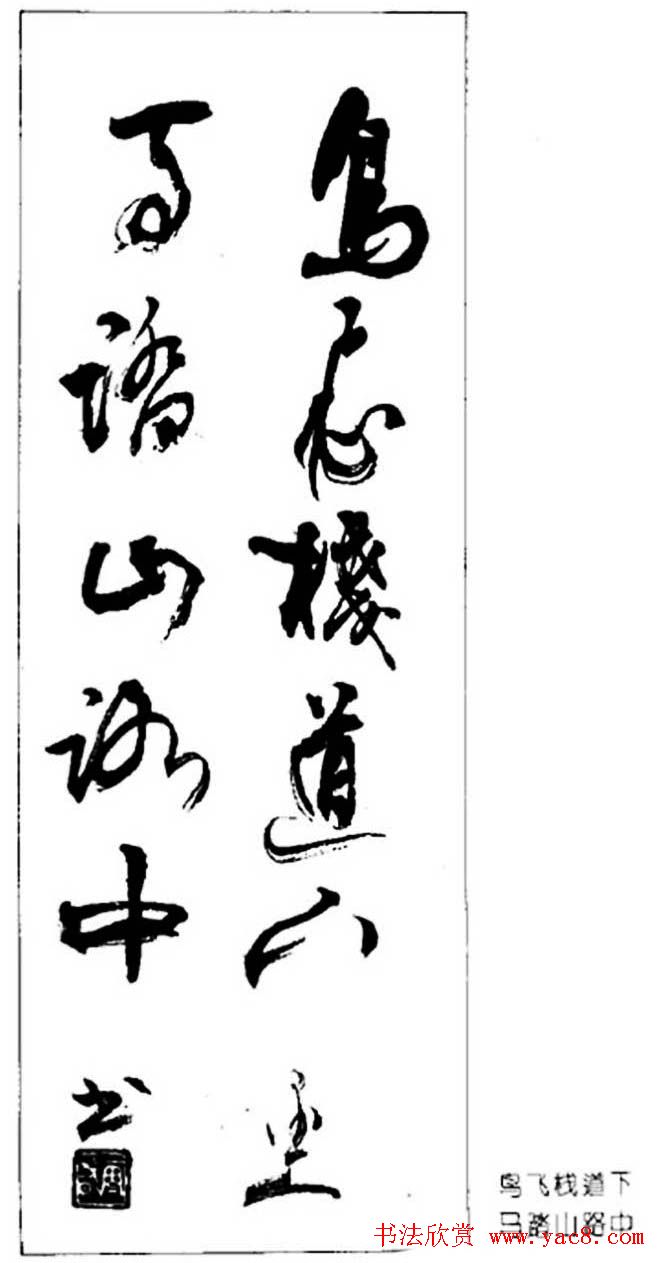 鳥飛棧道下
馬踏山路中
书
鸟飞栈道下
马踏山路中
书法欣赏 www.yac8.com